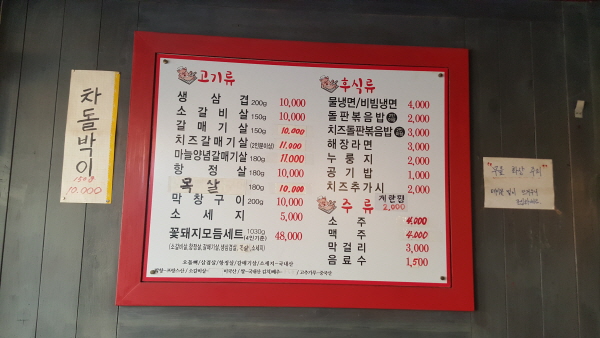 차돌박이
150g
10.000
고기류
생삼겹 200g 10,000
소갈비살 150g 10,000
갈매기살 150g 10.000
치즈갈매기살 (2인분이상) 11.000
마늘양념갈매기살 180g 11.000
항정살 180g 10,000
목살 180g 10.000
막창구이 200g 10,000
소세지 5,000
꽃돼지모듬세트 1030g (4인기준) 48,000
후식류
물냉면/비빔냉면 4,000
돌판볶음밥 2,000
치즈돌판볶음밥 3,000
해장라면 3,000
누룽지 2,000
공기밥 1,000
치즈추가시 2,000
계란찜 2,000
주류
소주 4.000
맥주 4.000
막걸리 3,000
음료수 1,500